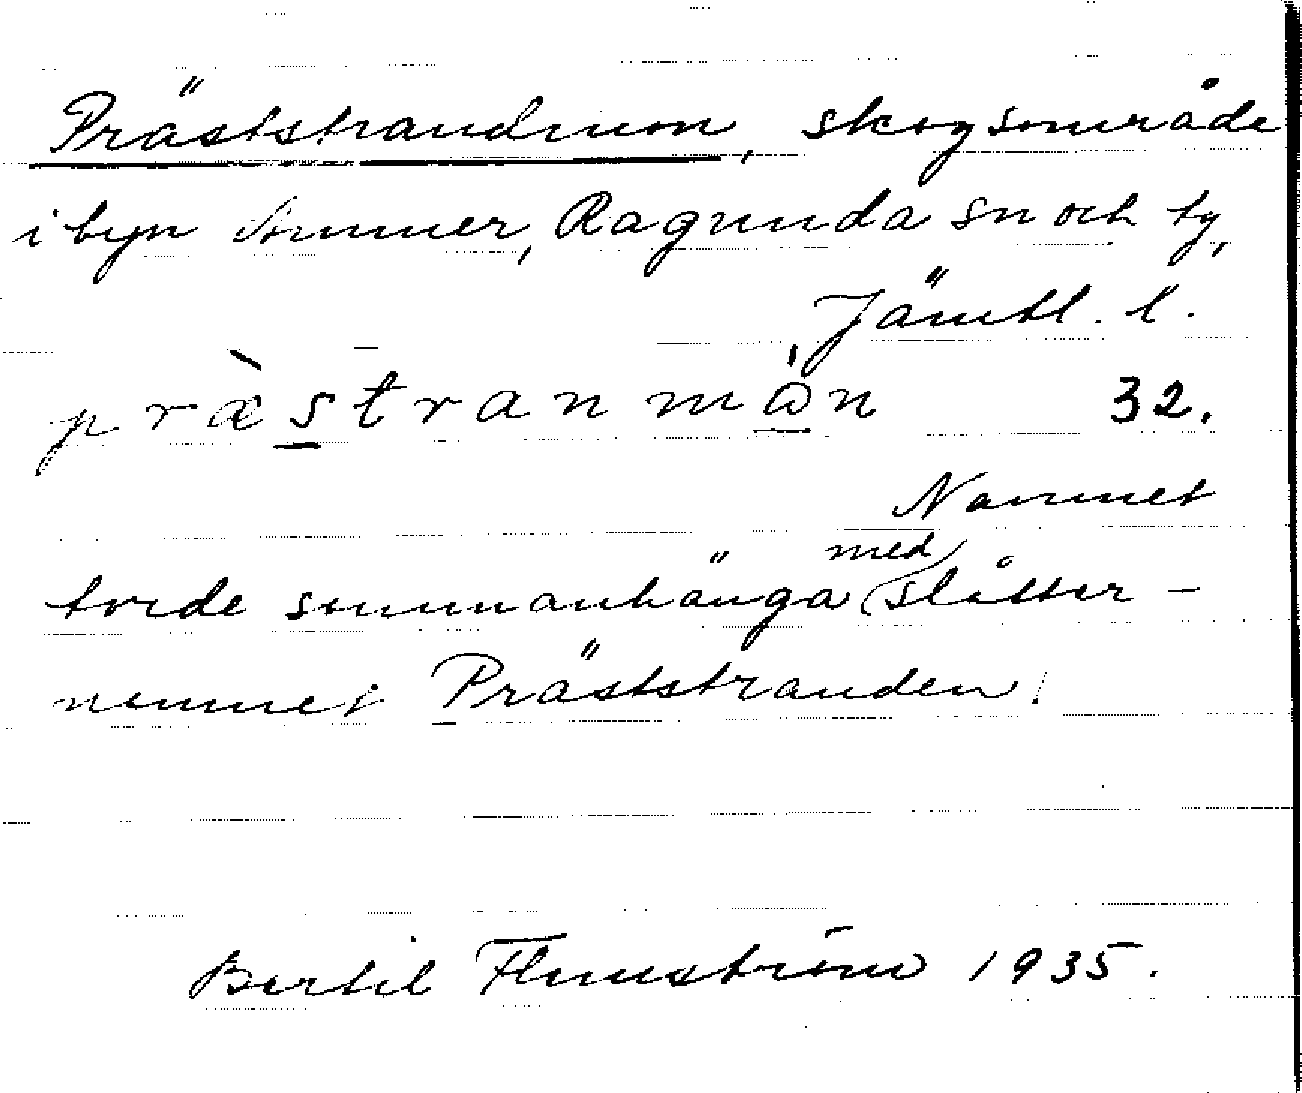 Präststrandmon, skogsområde
i byn Ammer, Ragunda sn och tg,
Jämtl. l.
præ̀stranmω̍n 32.
Namnet
torde sammanhänga med slåtter-
namnet Präststranden.
Bertil Flemström 1935.